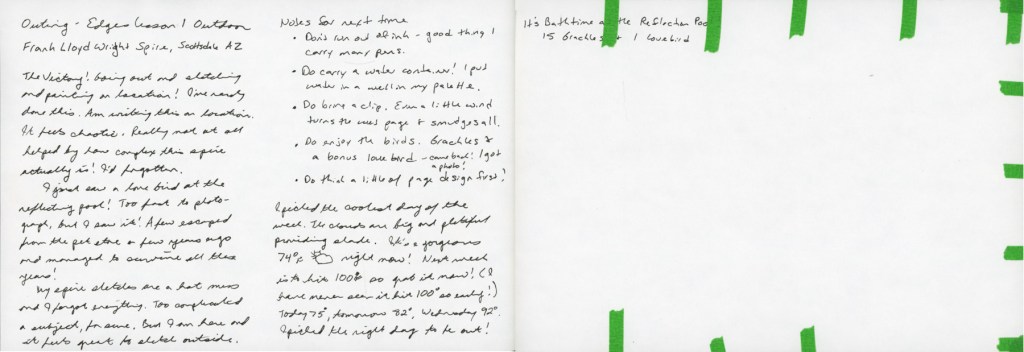 Outing - Edges Lesson 1 Outdoor
Frank Lloyd Wright Spire, Scottsdale AZ
The Victory! Going out and sketching
and painting on location! I've rarely
done this. Am writing this on location.
It feels chaotic. Really not at all
helped by how complex this spire
actually is! I'd forgotten.
I just saw a love bird at the
reflecting pool! Too fast to photo-
graph, but I saw it! A few escaped
from the pet store a few years ago
and managed to survive all these
years!
My spire sketches are a hot mess
and I forgot everything. Too complicated
a subject, for sure. But I am here and
it feels great to sketch outside.
Notes for next time
• Don't run out of ink - good thing I
carry many pens.
• Do carry a water container! I put
water in a well in my palette.
• Do bring a clip. Even a little wind
turns the page & smudges all.
• Do enjoy the birds. Grackles &
a bonus lovebird - came back! I got
a photo!
• Do think a little of page design first!
I picked the coolest day of the
week. The clouds are big and plentiful
providing shade. It's a gorgeous
74° right now! Next week
is to hit 100° so grab it now! (I
have never seen it hit 100° so early!)
Today 75°, tomorrow 82°, Wednesday 92°.
I picked the right day to be out!
It's Bathtime at the Reflection Poo
15 Grackles + 1 Lovebird